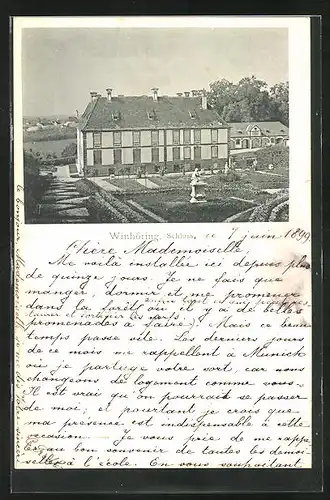 Winhöring, Schloss, ce 7 juin 1899
Chère Mademoiselle.
Me voilà installée ici depuis plus
de quinze jours. Je ne fais que
manger, dormir et me promener
dans la forêt où il y a de belles
promenades à faire). Mais ce beau
temps passe vite. Les derniers jours
de ce mois me rappellent à Munich
où je partage votre sort, car nous
changeons de logement comme vous.
Il est vrai qu'on pourrait se passer
de moi, et pourtant je crois que
ma présence est indispensable à cette
occasion. — Je vous prie de me rappe-
ler au bon souvenir de toutes les demoi-
selles à l'école. En vous souhaitant